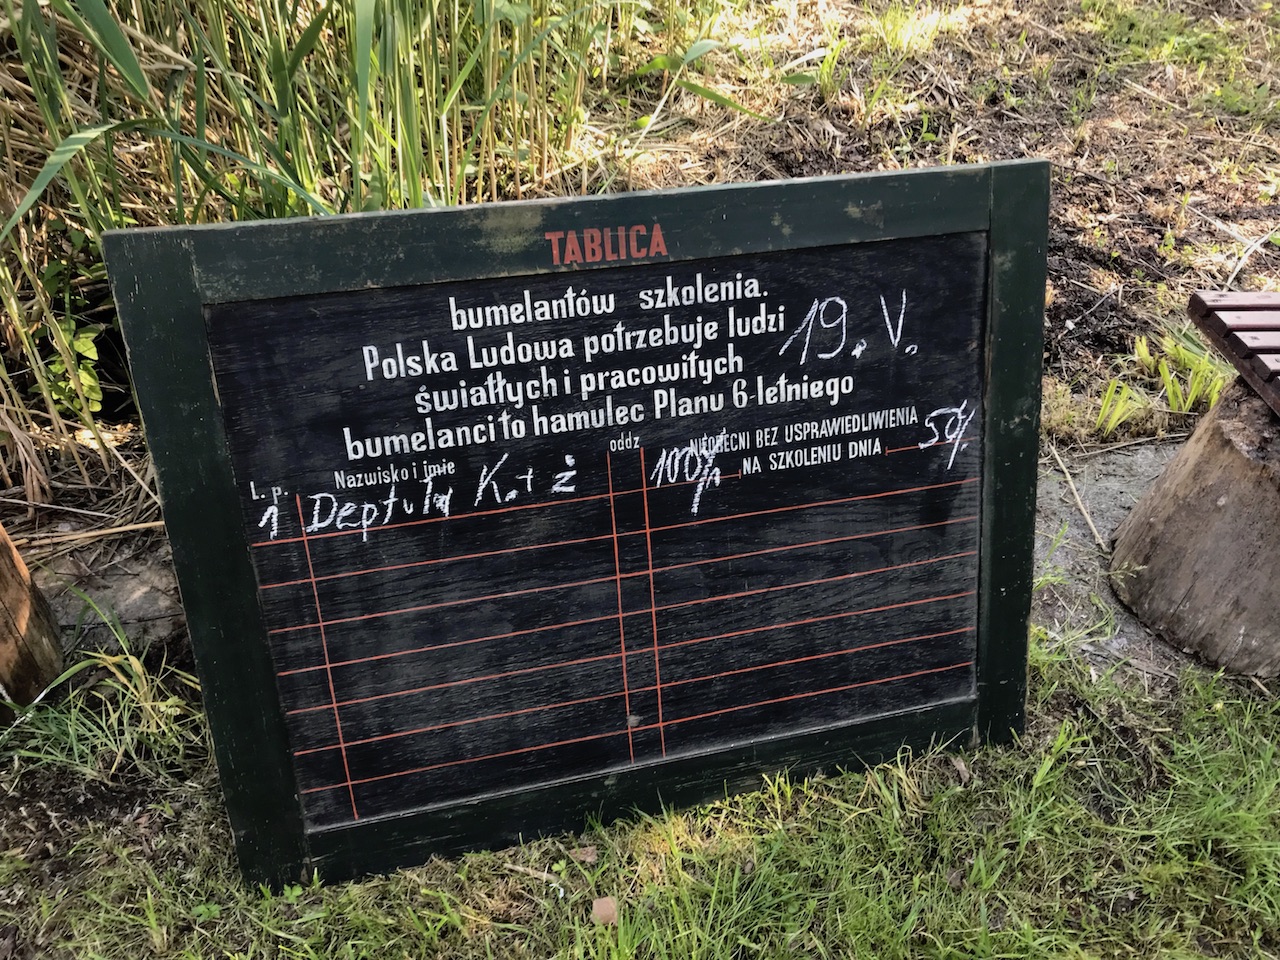 TABLICA
bumelantów szkolenia.
Polska Ludowa potrzebuje ludzi 19. V.
światłych i pracowitych
bumelanci to hamulec Planu 6-letniego
L. p. Nazwisko i imie oddz NIEOBECNI BEZ USPRAWIEDLIWIENIA
NA SZKOLENIU DNIA
1 Deptuła K. + ż 100% 50%